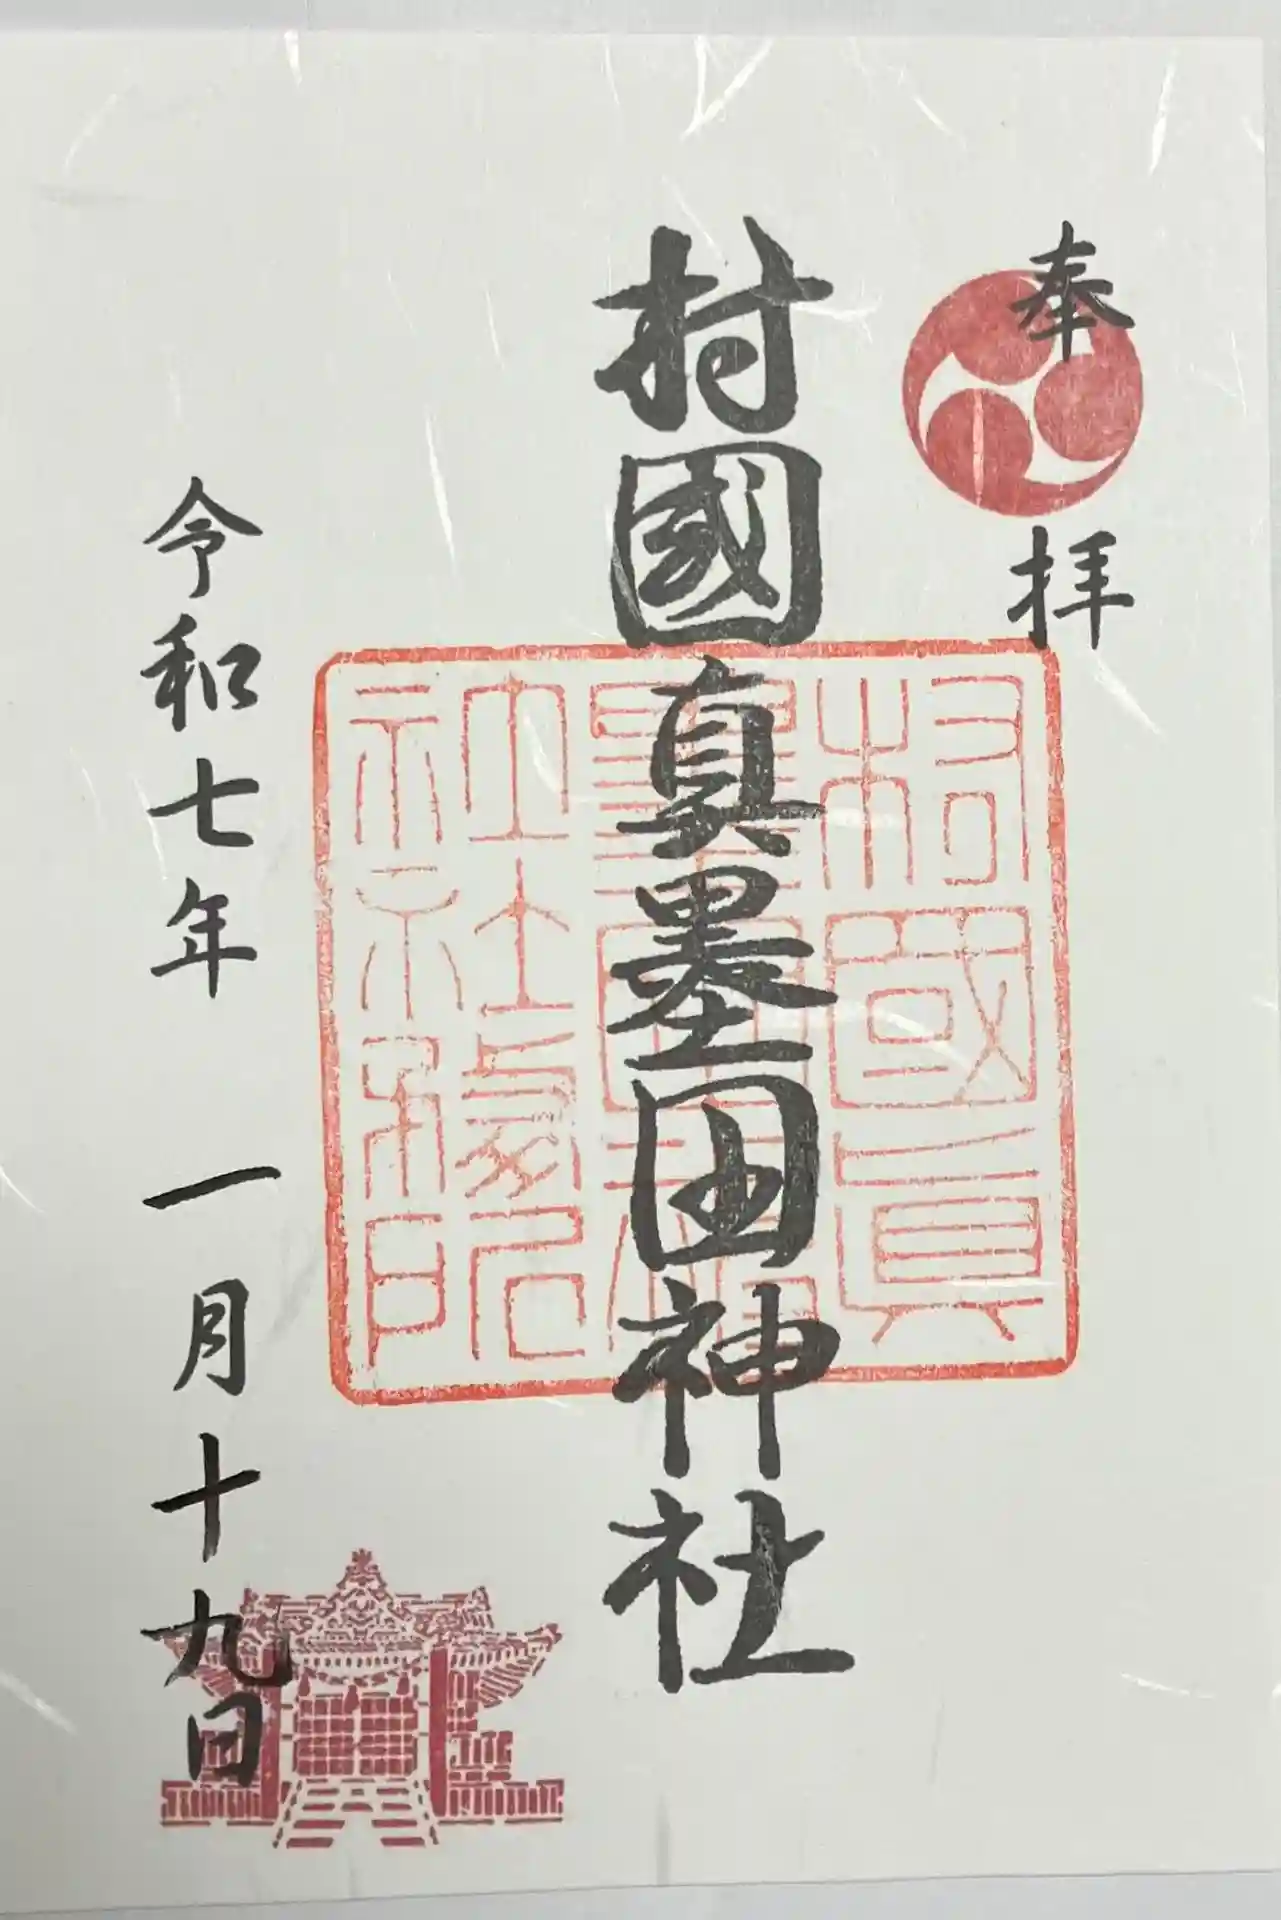 奉拝
村國真墨田神社
令和七年 一月十九日
村國真
墨田神
社社務所